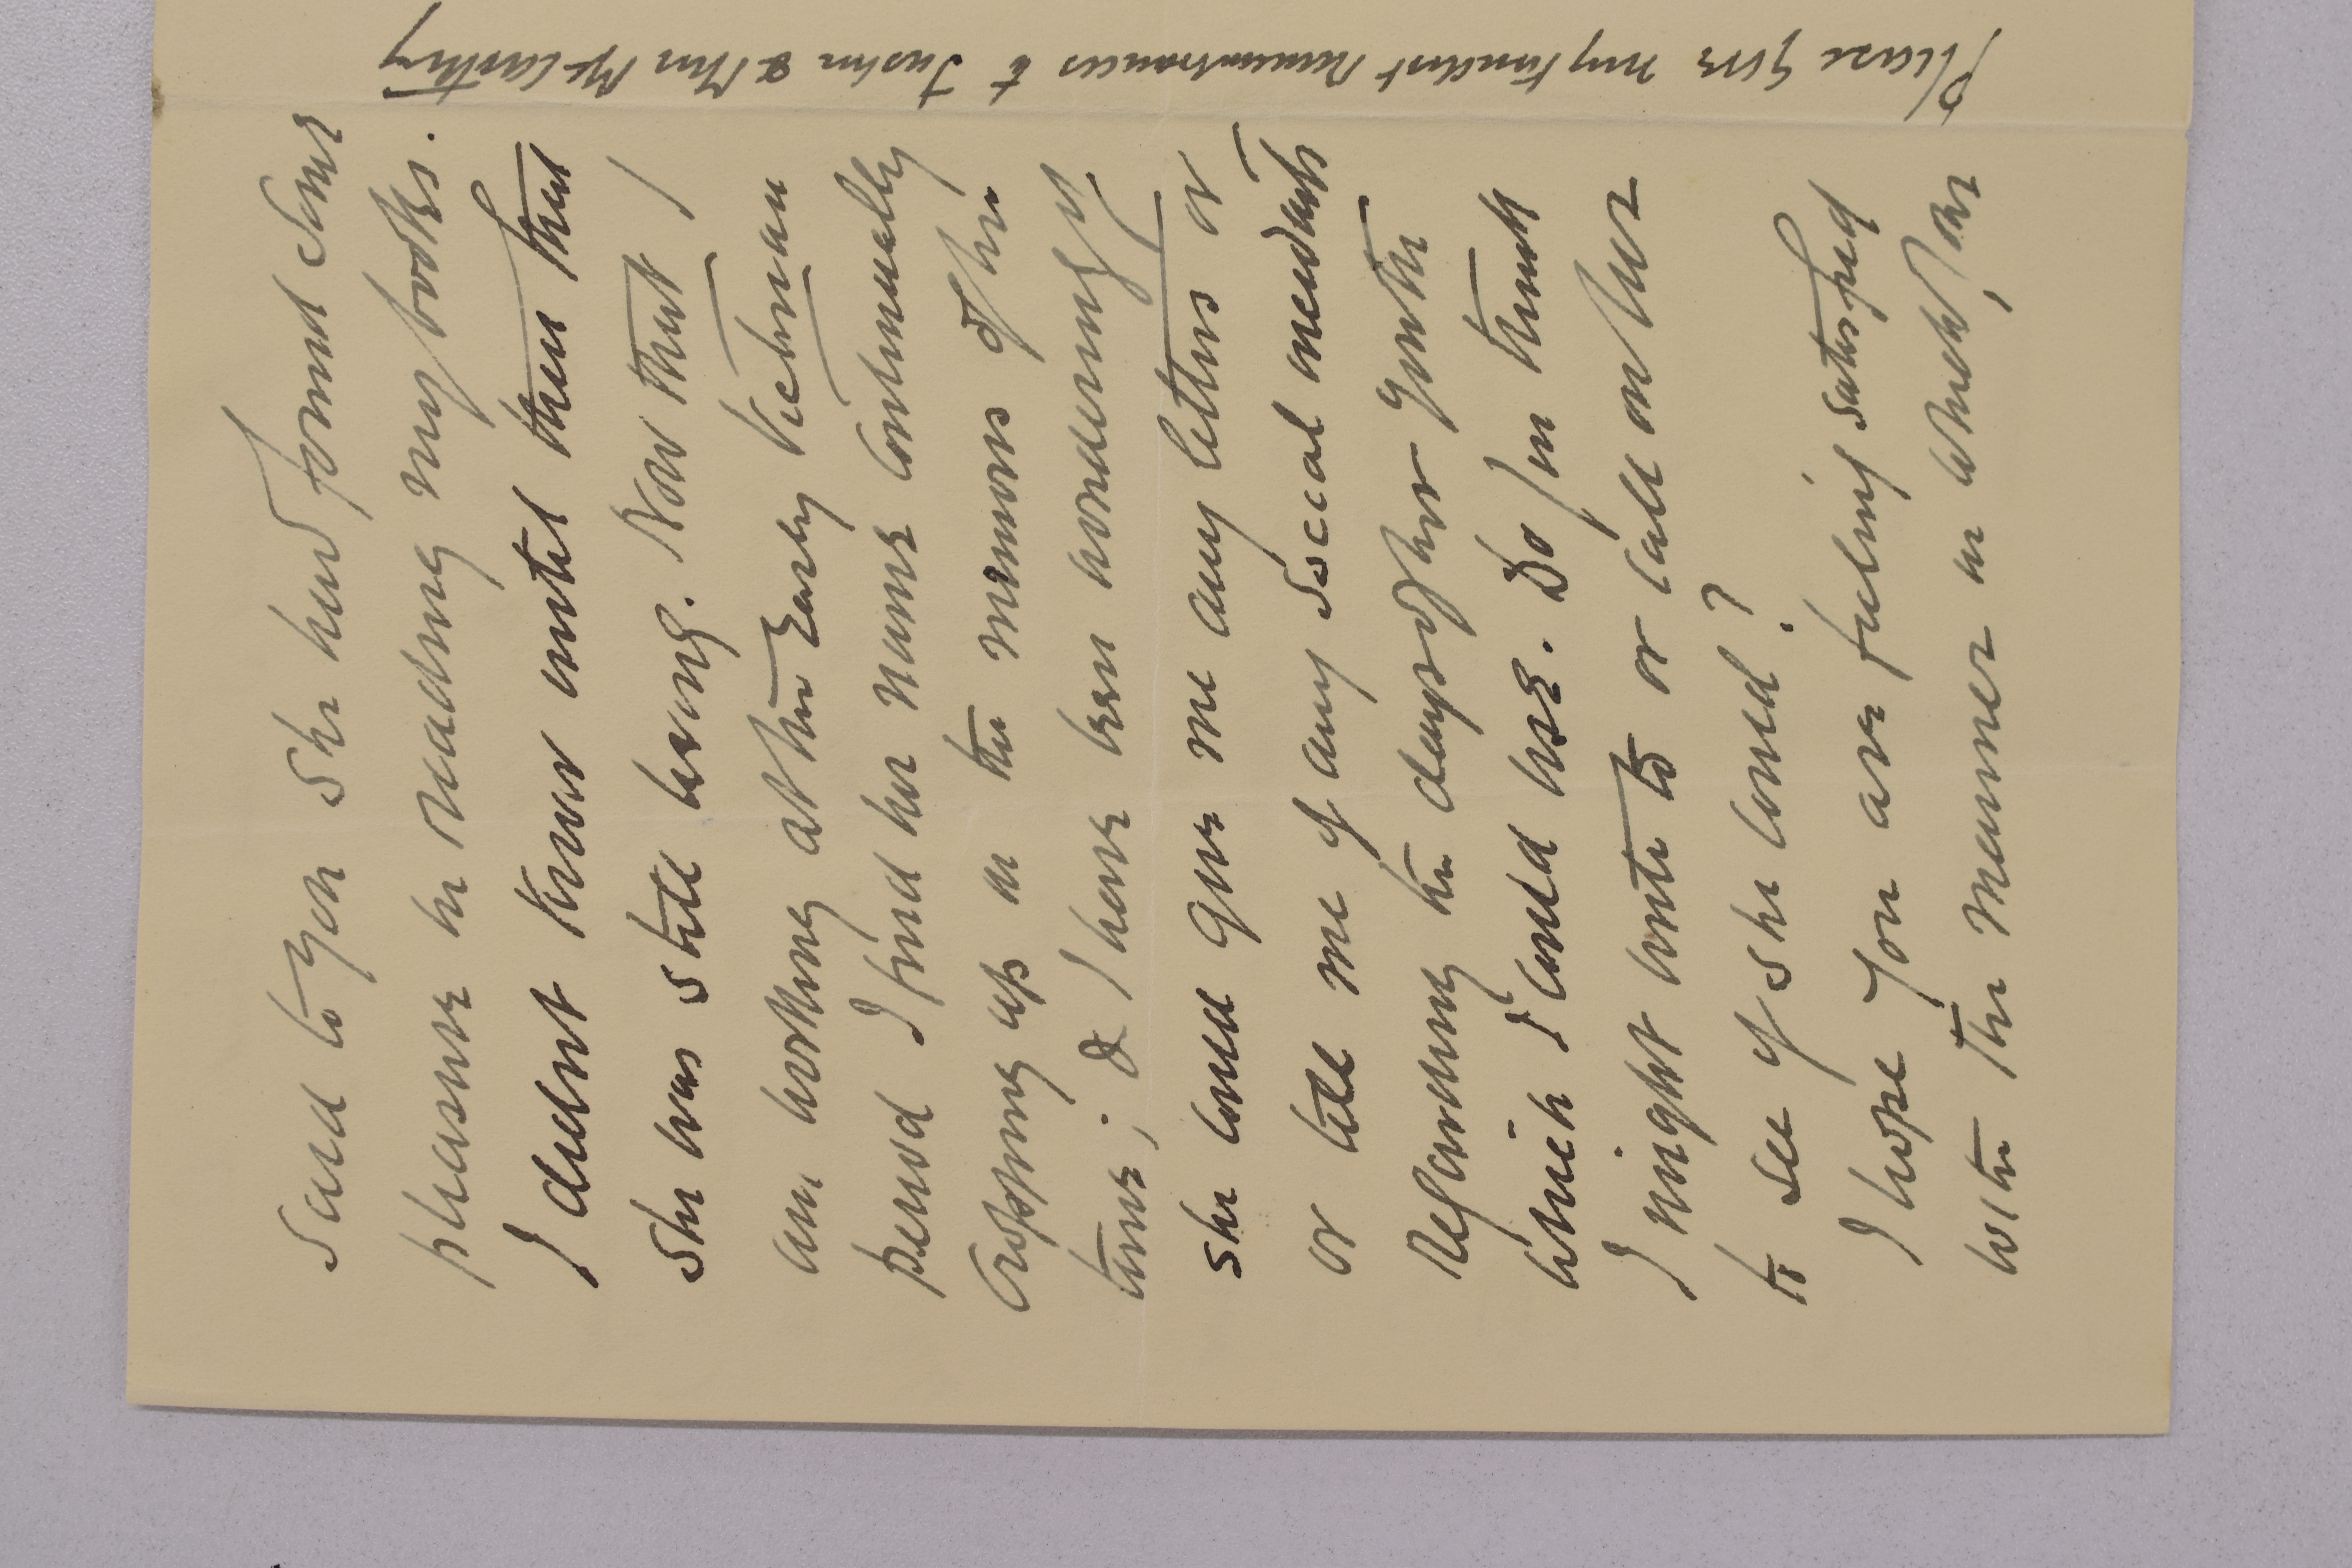 said to you she had found some
pleasure in reading my books.
I didnt know until then that
she was still living. Now that I
am working at the Early Victorian
period I find her name continually
cropping up in the memoirs of the
time; & I have been wondering if
she could give me any letters or
or tell me of any social anecdotes
regarding the days of her youth
which I could use. Do you think
I might write to or call on her
to see if she could?
I hope you are feeling satisfied
with the manner in which, 
Please give my kindest remembrances to Justin & Mrs McCarthy